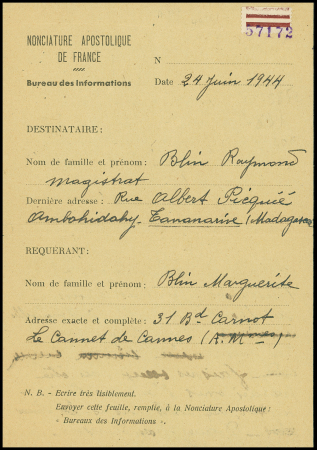 57172
NONCIATURE APOSTOLIQUE
DE FRANCE
Bureau des Informations
N
Date 24 Juin 1944
DESTINATAIRE :
Nom de famille et prénom : Blin Raymond
magistrat
Dernière adresse : Rue Albert Picquié
Ambohidahy - Tananarive (Madagascar
REQUERANT :
Nom de famille et prénom : Blin Marguerite
Adresse exacte et complète : 31 Bd Carnot
Le Cannet de Cannes (A. Mmes)
N. B. - Ecrire très lisiblement.
Envoyer cette feuille, remplie, à la Nonciature Apostolique :
« Bureaux des Informations ».